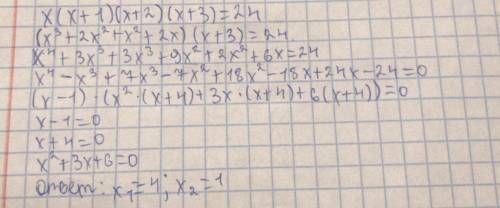 x(x+1)(x+2)(x+3)=24
(x³+2x²+x²+2x)(x+3)=24
x⁴+3x³+3x³+9x²+2x²+6x=24
x⁴-x³+7x³-7x²+18x²-18x+24x-24=0
(x-1)·(x²·(x+4)+3x·(x+4)+6(x+4))=0
x-1=0
x+4=0
x²+3x+6=0
ответ: x₁=4; x₂=1